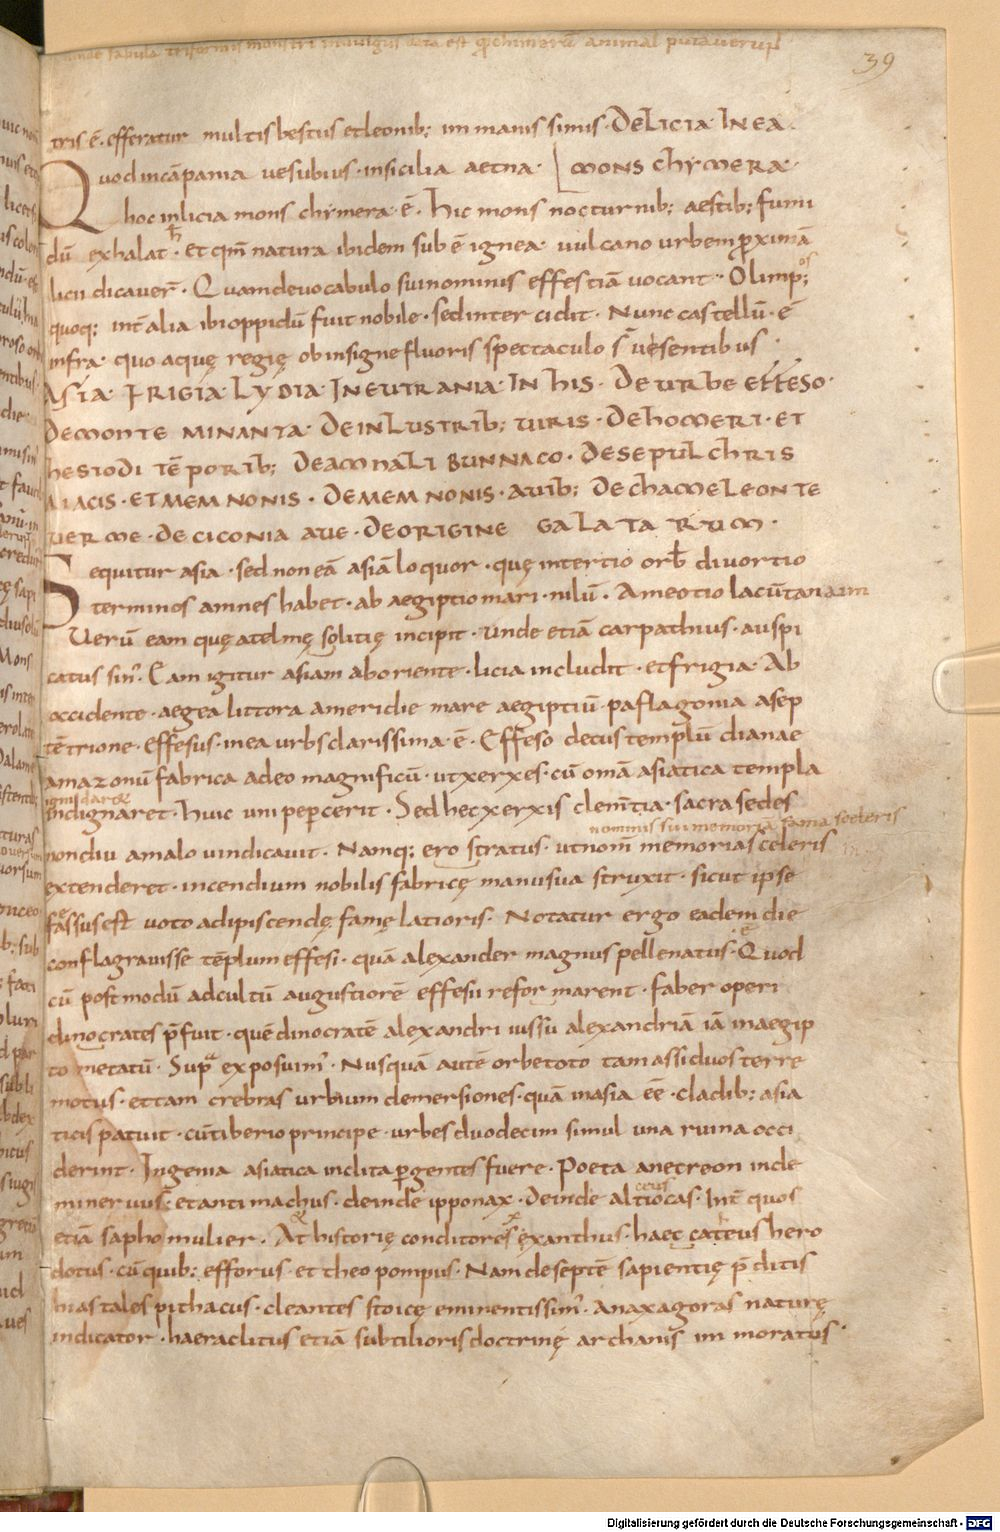 unde fabula triformis monstri inuulgus data est q̄ chimerū animal putauerunt
39
tris ē· efferatur multis bestiis et leonib; inmanis simis· DE LICIA· IN EA·
Quod in cāpania uesubius· in sicilia aetna· MONS CHYMERA·
hoc in licia mons chymera· ē· hic mons nocturnib; aestib; fumi
dū exhalat· et qm̄ natura ibidem sub ē ignea· uulcano urbem ꝓximā
licii dicauer̄· Quam de uocabulo sui nominis effestiā uocant· Olimp;
quoq; int̄ alia ibi oppidū fuit nobile· sed intercidit· Nunc castellū· ē
infra· quo aquę regię ob insigne fluoris spectaculo s̄ uesentibus·
ASIA· FRIGIA· LYDIA· IN EUTRANIA· IN HIS· DE URBE EFFESO·
DE MONTE MINANTA· DE INLUSTRIB; UIRIS· DE HOMERI· ET
HESIODI TĒPORIB; DE AMNALI BUNNACO· DE SEPULCHRIS
AIACIS· ET MEMNONIS· DE MEMNONIS· AUIB; DE CHAMELEONTE
UERME· DE CICONIA AUE· DE ORIGINE GALATARUM·
Sequitur asia· sed non eā asiā loquor· quę in tertio orb̄ diuortio
terminos amnes habet· ab aegiptio mari· nilū· A meotio lacū tanaim
Uerū eam quę a telmę solitię incipit· unde etiā carpathius· auspi
catus sin̄· Eam igitur asiam ab oriente· licia includit· et frigia· Ab
occidente· aegea littora a meridie mare aegiptiū· paflagonia a sep
tētrione· Effesus· in ea urbs clarissima· ē· Effeso decus templū dianae
amazonū fabrica adeo magnificū· ut xerxes· cū omā asiatica templa
igni daret
indignaret· huic uni pepercerit· Sed hec xerxis clem̄tia· sacra sedes
nominis sui memoriā fama sceleris
non diu a malo uindicauit· Namq; ero stratus· ut nom̄ memorias celeris
extenderet· incendium nobilis fabricę manu sua struxit· sicut ipse
fassus est uoto adipiscendę famę latioris· Notatur ergo eadem die
conflagrauisse tēplum effesi· quā alexander magnus pelle natus· Quod
cū postmodū ad cultū augustiorē effesii reformarent· faber operi
dinocrates p̄fuit· quē dinocratē alexandri iussu alexandriā iā in aegip
to metatū· Sup̄ exposuim̄· Nusquā autē orbe toto tam assiduos terre
motus· et tam crebras urbium demersiones· quā in asia ēē· cladib; asia
ticis patuit· cū tiberio principe· urbes duodecim simul una ruina occi
derint· Ingenia asiatica inclita ꝑ gentes fuere· Poeta anetreon inde
mineruus· et antimachus· deinde ipponax· Deinde altiocas· Int̄ quos
etiā sapho mulier· At historię conditores exanthus· haec cateus hero
dotus· cū quib; efforus· et theopompus· Nam de septē sapientię p̄ditis
bias tales pithacus· cleantes stoicę eminentissim̄· anaxagoras naturę
indicator· haeraclitus etiā subtilioris doctrinę archanis immoratus·
Digitalisierung gefördert durch die Deutsche Forschungsgemeinschaft - DFG